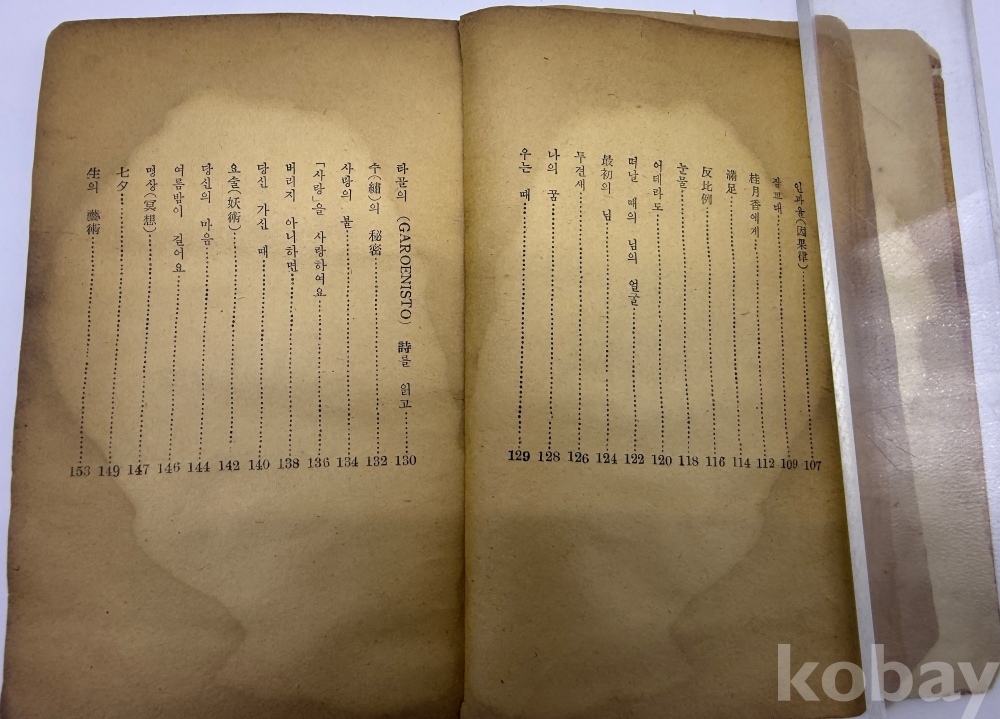 인과율(因果律)……107
잠꼬대……109
桂月香에게……112
滿足……114
反比例……116
눈물……118
어데라도……120
떠날 때의 님의 얼굴……122
最初의 님……124
두견새……126
나의 꿈……128
우는 때……129
타골의 (GAROENISTO) 詩를 읽고……130
수(繡)의 秘密……132
사랑의 불……134
「사랑」을 사랑하여요……136
버리지 아니하면……138
당신 가신 때……140
요술(妖術)……142
당신의 마음……144
여름밤이 길어요……146
명상(冥想)……147
七夕……149
生의 藝術……153
kobay